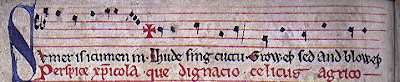 Sumer is icumen in. Lhude sing cuccu. Groweþ sed and bloweþ
Perspice xp̄icola que dignacio celicus agrico